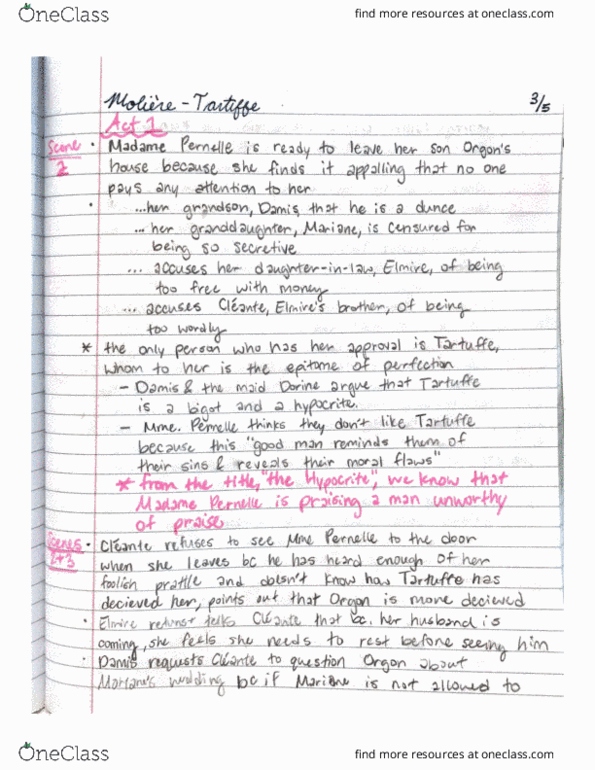 OneClass
find more resources at oneclass.com
Molière - Tartiffe
3/5
Act 1
Scene 1
• Madame Pernelle is ready to leave her son Orgon's
house because she finds it appalling that no one
pays any attention to her
• ...her grandson, Damis, that he is a dunce
... her granddaughter, Mariane, is censured for
being so secretive
... accuses her daughter-in-law, Elmire, of being
too free with money
... accuses Cléante, Elmire's brother, of being
too wordly
* the only person who has her approval is Tartuffe,
whom to her is the epitome of perfection
- Damis & the maid Dorine argue that Tartuffe
is a bigot and a hypocrite.
- Mme. Pernelle thinks they don't like Tartuffe
because this "good man reminds them of
their sins & reveals their moral flaws"
* from the title, "the Hypocrite", we know that
Madame Pernelle is praising a man unworthy
of praise
Scenes 2+3
• Cléante refuses to see Mme Pernelle to the door
when she leaves bc he has heard enough of her
foolish prattle and doesn't know how Tartuffe has
decieved her, points out that Orgon is more decieved
• Elmire returns+ tells Cléante that bc. her husband is
coming, she feels she needs to rest before seeing him
• Damis requests Cléante to question Orgon about
Mariane's wedding bc if Mariane is not allowed to
OneClass
find more resources at oneclass.com